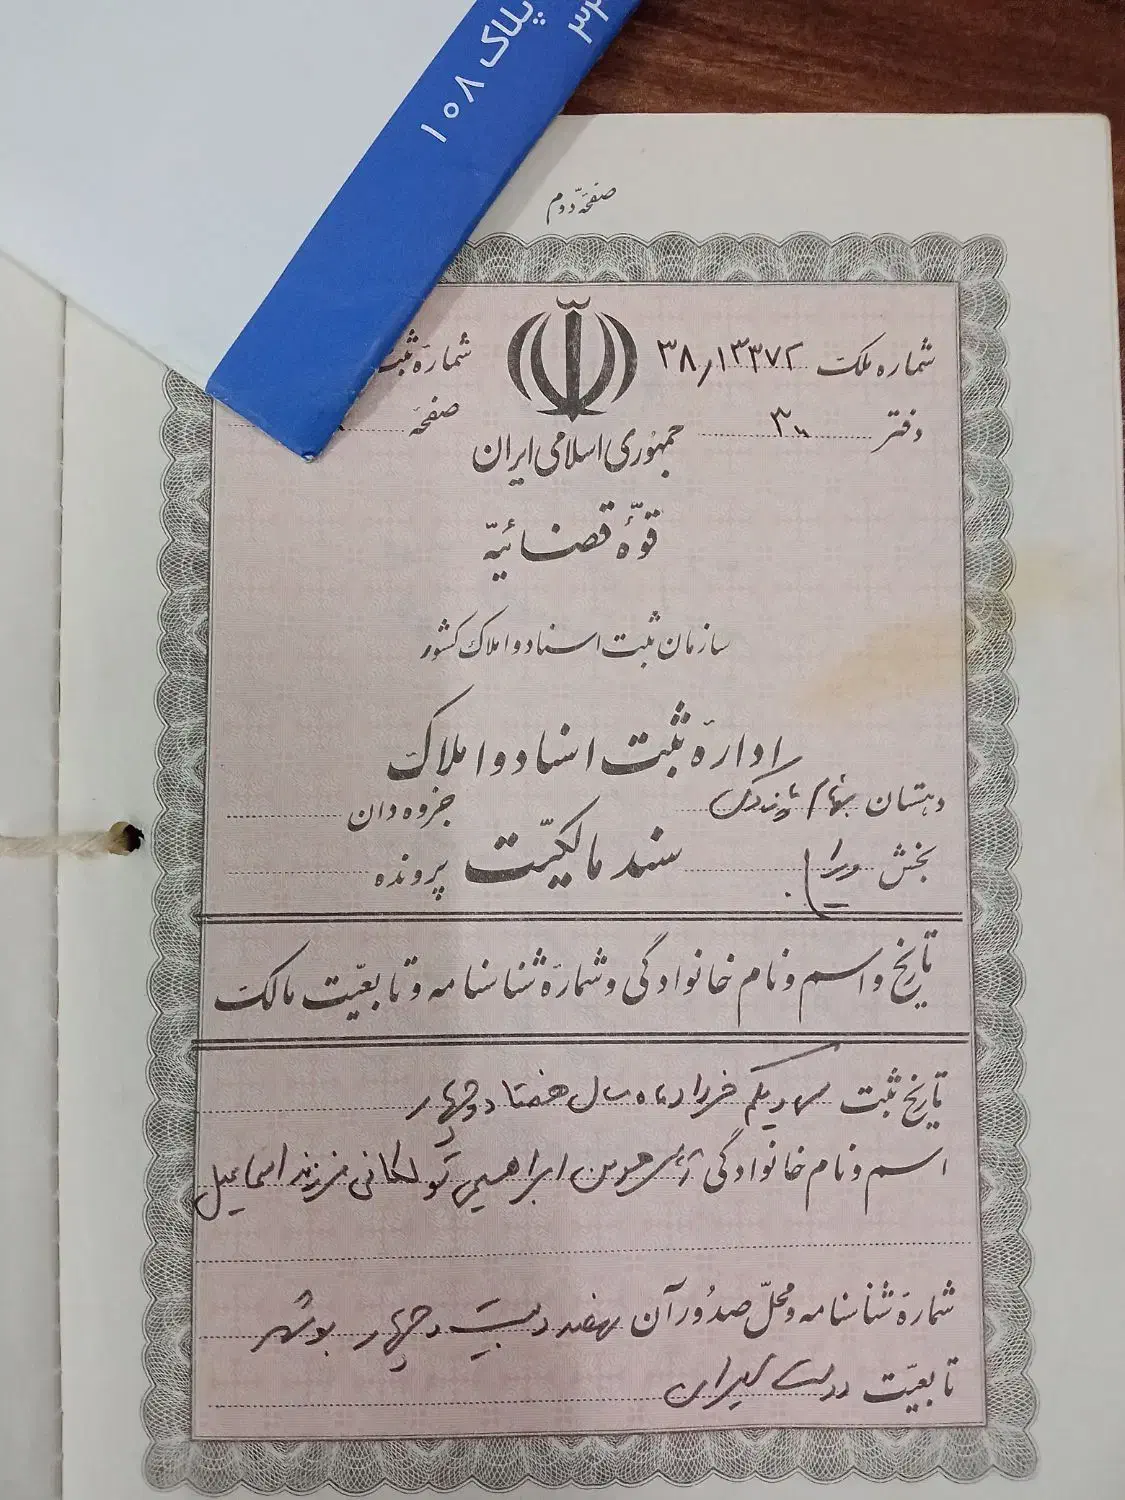 پلاک ۱۰۸
صفحهٔ دوم
شماره ملک ۳۸٫۱۳۳۷۲
شمارهٔ ثبت
دفتر
صفحهٔ
جمهوری اسلامی ایران
قوّهٔ قضائیّه
سازمان ثبت اسناد و املاک کشور
ادارهٔ ثبت اسناد و املاک
دهستان
جزوه دان
بخش
سند مالکیّت
پرونده
تاریخ و اسم و نام خانوادگی و شمارهٔ شناسنامه و تابعیّت مالک
تاریخ ثبت سی و یکم خرداد ماه سال هفتاد و چهار
اسم و نام خانوادگی ابراهیمی فرزند اسماعیل
شمارهٔ شناسنامه و محلّ صدور آن بیست و چهار بوشهر
تابعیّت دولت ایران